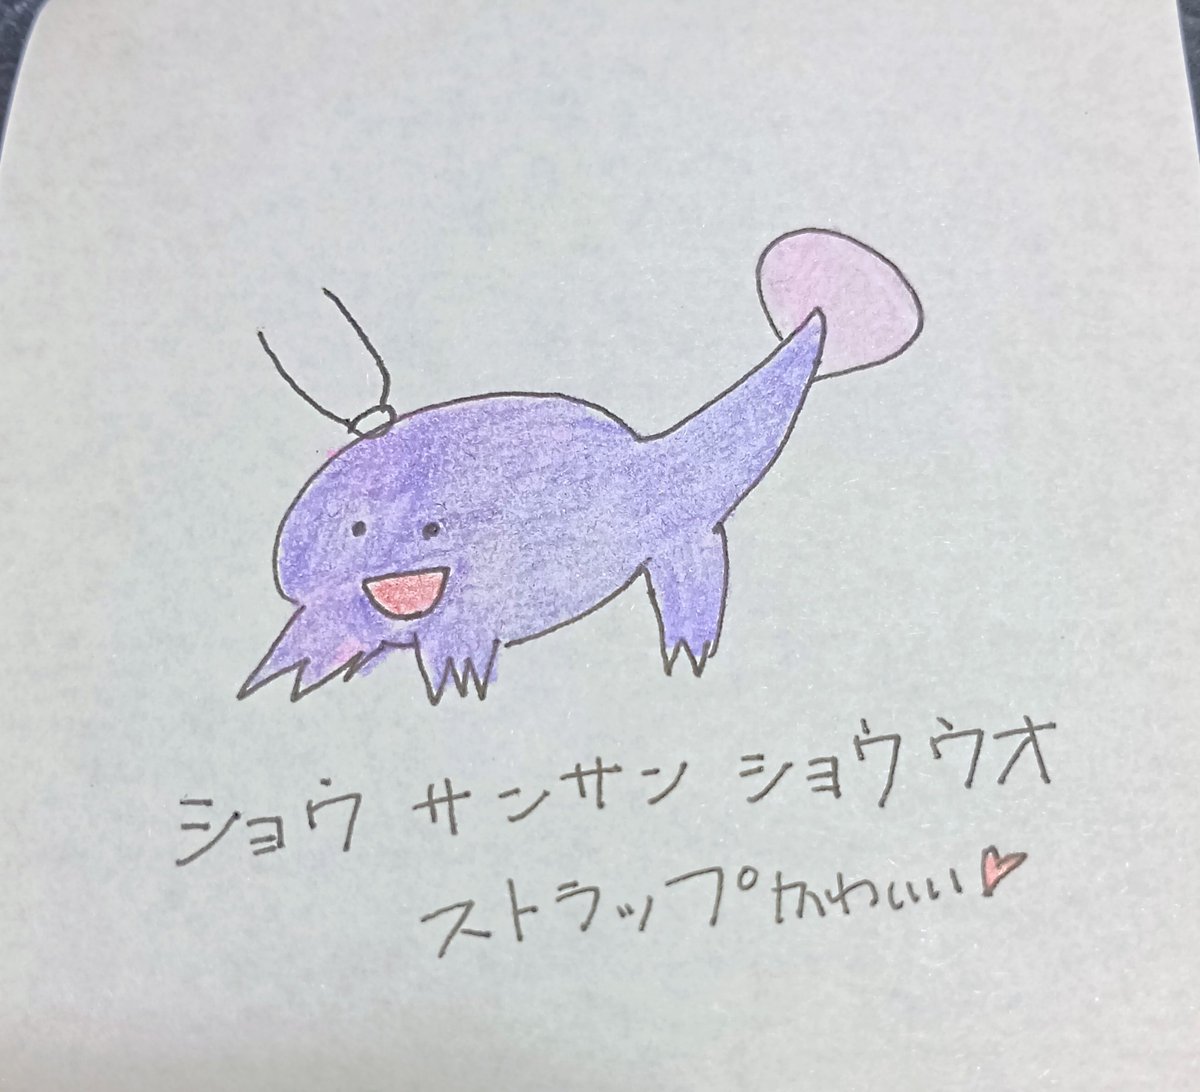 ショウサンサンショウウオ
ストラップかわいい♥